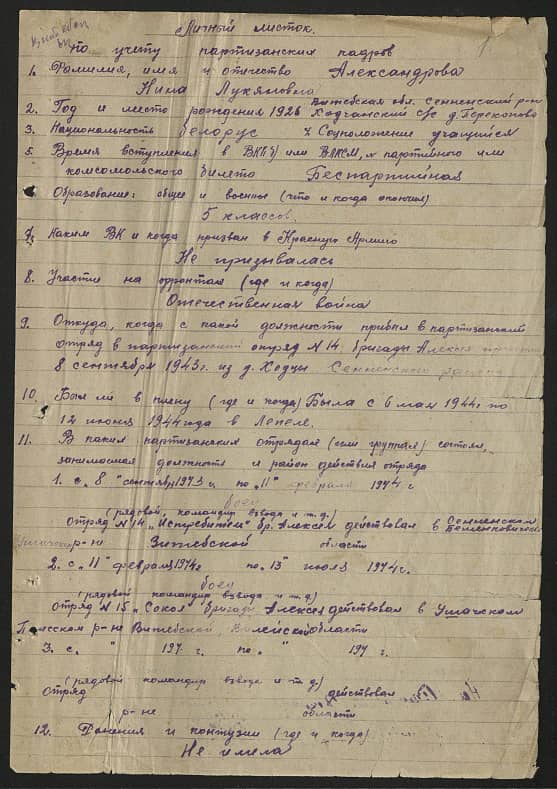 Личный листок
по учету партизанских кадров
1. Фамилия, имя и отчество Александрова
Нина Лукяновна
2. Год и место рождения 1926 Витебская обл. Сенненский р-н
Ходчанский с/с д. Тереховo
3. Национальность белорус 4 Соцположение учащийся
5. Время вступления в ВКП/б/ или ВЛКСМ, № партийного или
комсомольского билета Беспартийная
Образование: общее и военное (что и когда окончил)
5 классов.
7. Каким ВК и когда призван в Красную Армию
Не призывалась
8. Участие на фронтах (где и когда)
Отечественная война
9. Откуда, когда с какой должности прибыл в партизанский
отряд в партизанский отряд №14 бригады Алексея
8 сентября 1943г. из д. Ходцы Сенненского района
10. Был ли в плену (где и когда) Была с 6 мая 1944г по
12 июня 1944 года в Лепеле.
11. В каких партизанских отрядах (если группах) состоял,
занимаемая должность и район действия отряда
1. с „8" сентября 1943 г. по „11" февраля 1944 г
боец
(рядовой, командир взвода и т.д.)
Отряд №14 „Истребитель" бр. Алексея действовал в Сенненском
Бешенковичском
Ушачском р-не Витебской области
2. с „11" февраля 1944г по „15" июля 1944г.
боец
(рядовой командир взвода и т.д.)
Отряд №15 „Сокол" бригады Алексея действовал в Ушачском
р-не Витебской, Вилейской области
3. с. " 194 г. по " 194 г.
(рядовой командир взвода и т.д.)
Отряд действовал
р-не области
12. Ранения и контузии (где и когда)
Не имела